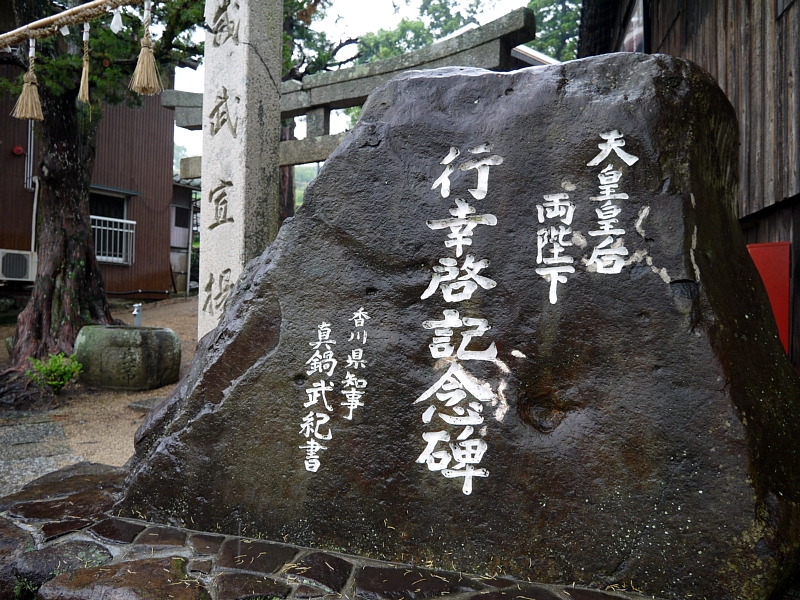 天皇皇后
両陛下
行幸啓記念碑
香川県知事
真鍋武紀書
武宣揚